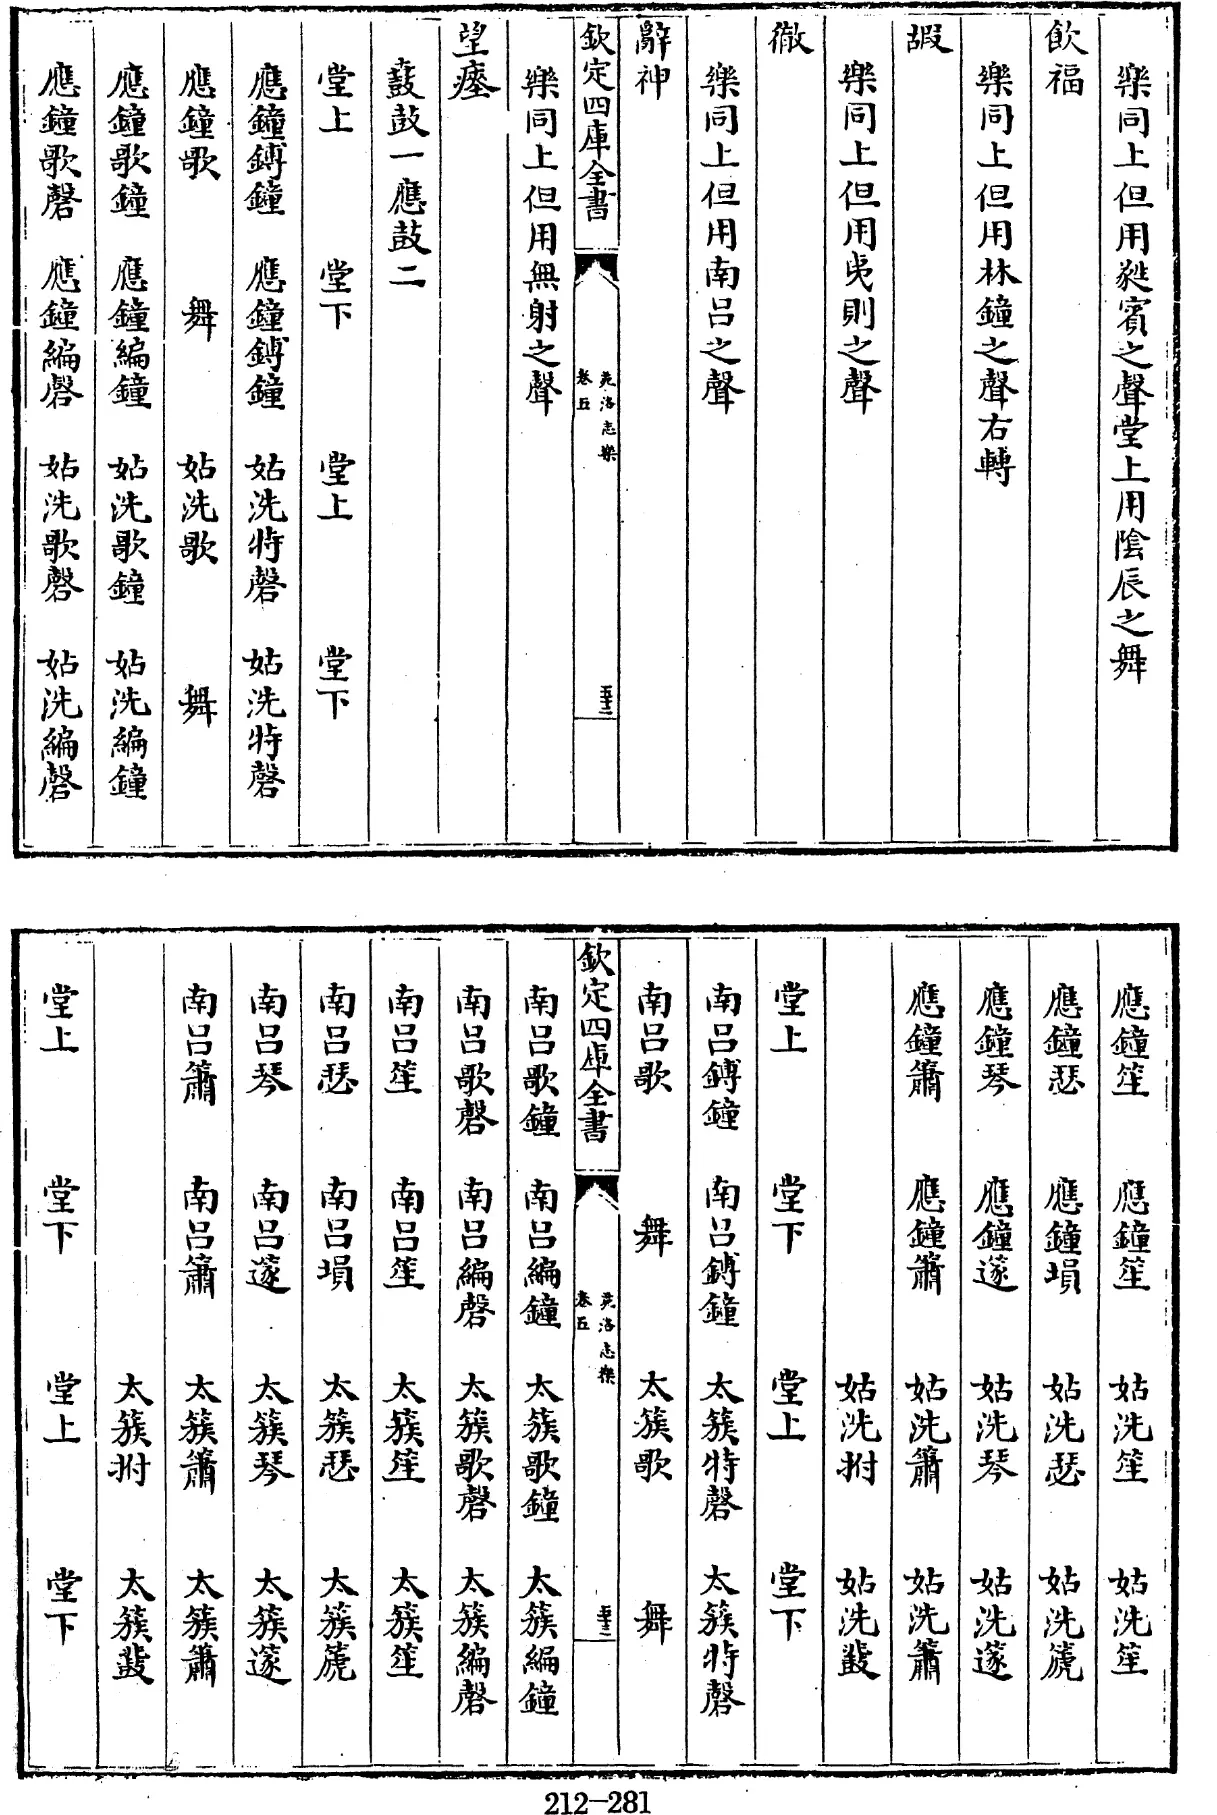 樂同上但用蕤賓之聲堂上用陰辰之舞
飲福
樂同上但用林鐘之聲右轉
嘏
樂同上但用夷則之聲
徹
樂同上但用南呂之聲
辭神
欽定四庫全書
苑洛志樂
卷五
樂同上但用無射之聲
望瘞
鼖鼓一應鼓二
堂上 堂下 堂上 堂下
應鐘鎛鐘 應鐘鎛鐘 姑洗特磬 姑洗特磬
應鐘歌 舞 姑洗歌 舞
應鐘歌鐘 應鐘編鐘 姑洗歌鐘 姑洗編鐘
應鐘歌磬 應鐘編磬 姑洗歌磬 姑洗編磬
應鐘笙 應鐘笙 姑洗笙 姑洗笙
應鐘瑟 應鐘塤 姑洗瑟 姑洗篪
應鐘琴 應鐘篴 姑洗琴 姑洗篴
應鐘簫 應鐘簫 姑洗簫 姑洗簫
姑洗拊 姑洗鼗
堂上 堂下 堂上 堂下
南呂鎛鐘 南呂鎛鐘 太簇特磬 太簇特磬
南呂歌 舞 太簇歌 舞
欽定四庫全書
苑洛志樂
卷五
南呂歌鐘 南呂編鐘 太簇歌鐘 太簇編鐘
南呂歌磬 南呂編磬 太簇歌磬 太簇編磬
南呂笙 南呂笙 太簇笙 太簇笙
南呂瑟 南呂塤 太簇瑟 太簇篪
南呂琴 南呂篴 太簇琴 太簇篴
南呂簫 南呂簫 太簇簫 太簇簫
太簇拊 太簇鼗
堂上 堂下 堂上 堂下
212-281